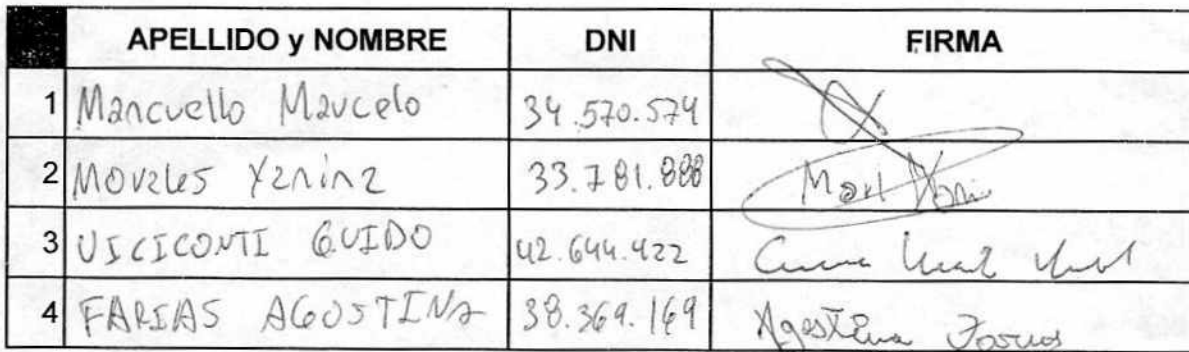 APELLIDO y NOMBRE DNI FIRMA
1 Mancuello Marcelo 34.570.574
2 Morales Yanina 33.781.888
3 VICICONTI GUIDO 42.644.422
4 FARIAS AGOSTINA 38.369.169 Agostina Farias